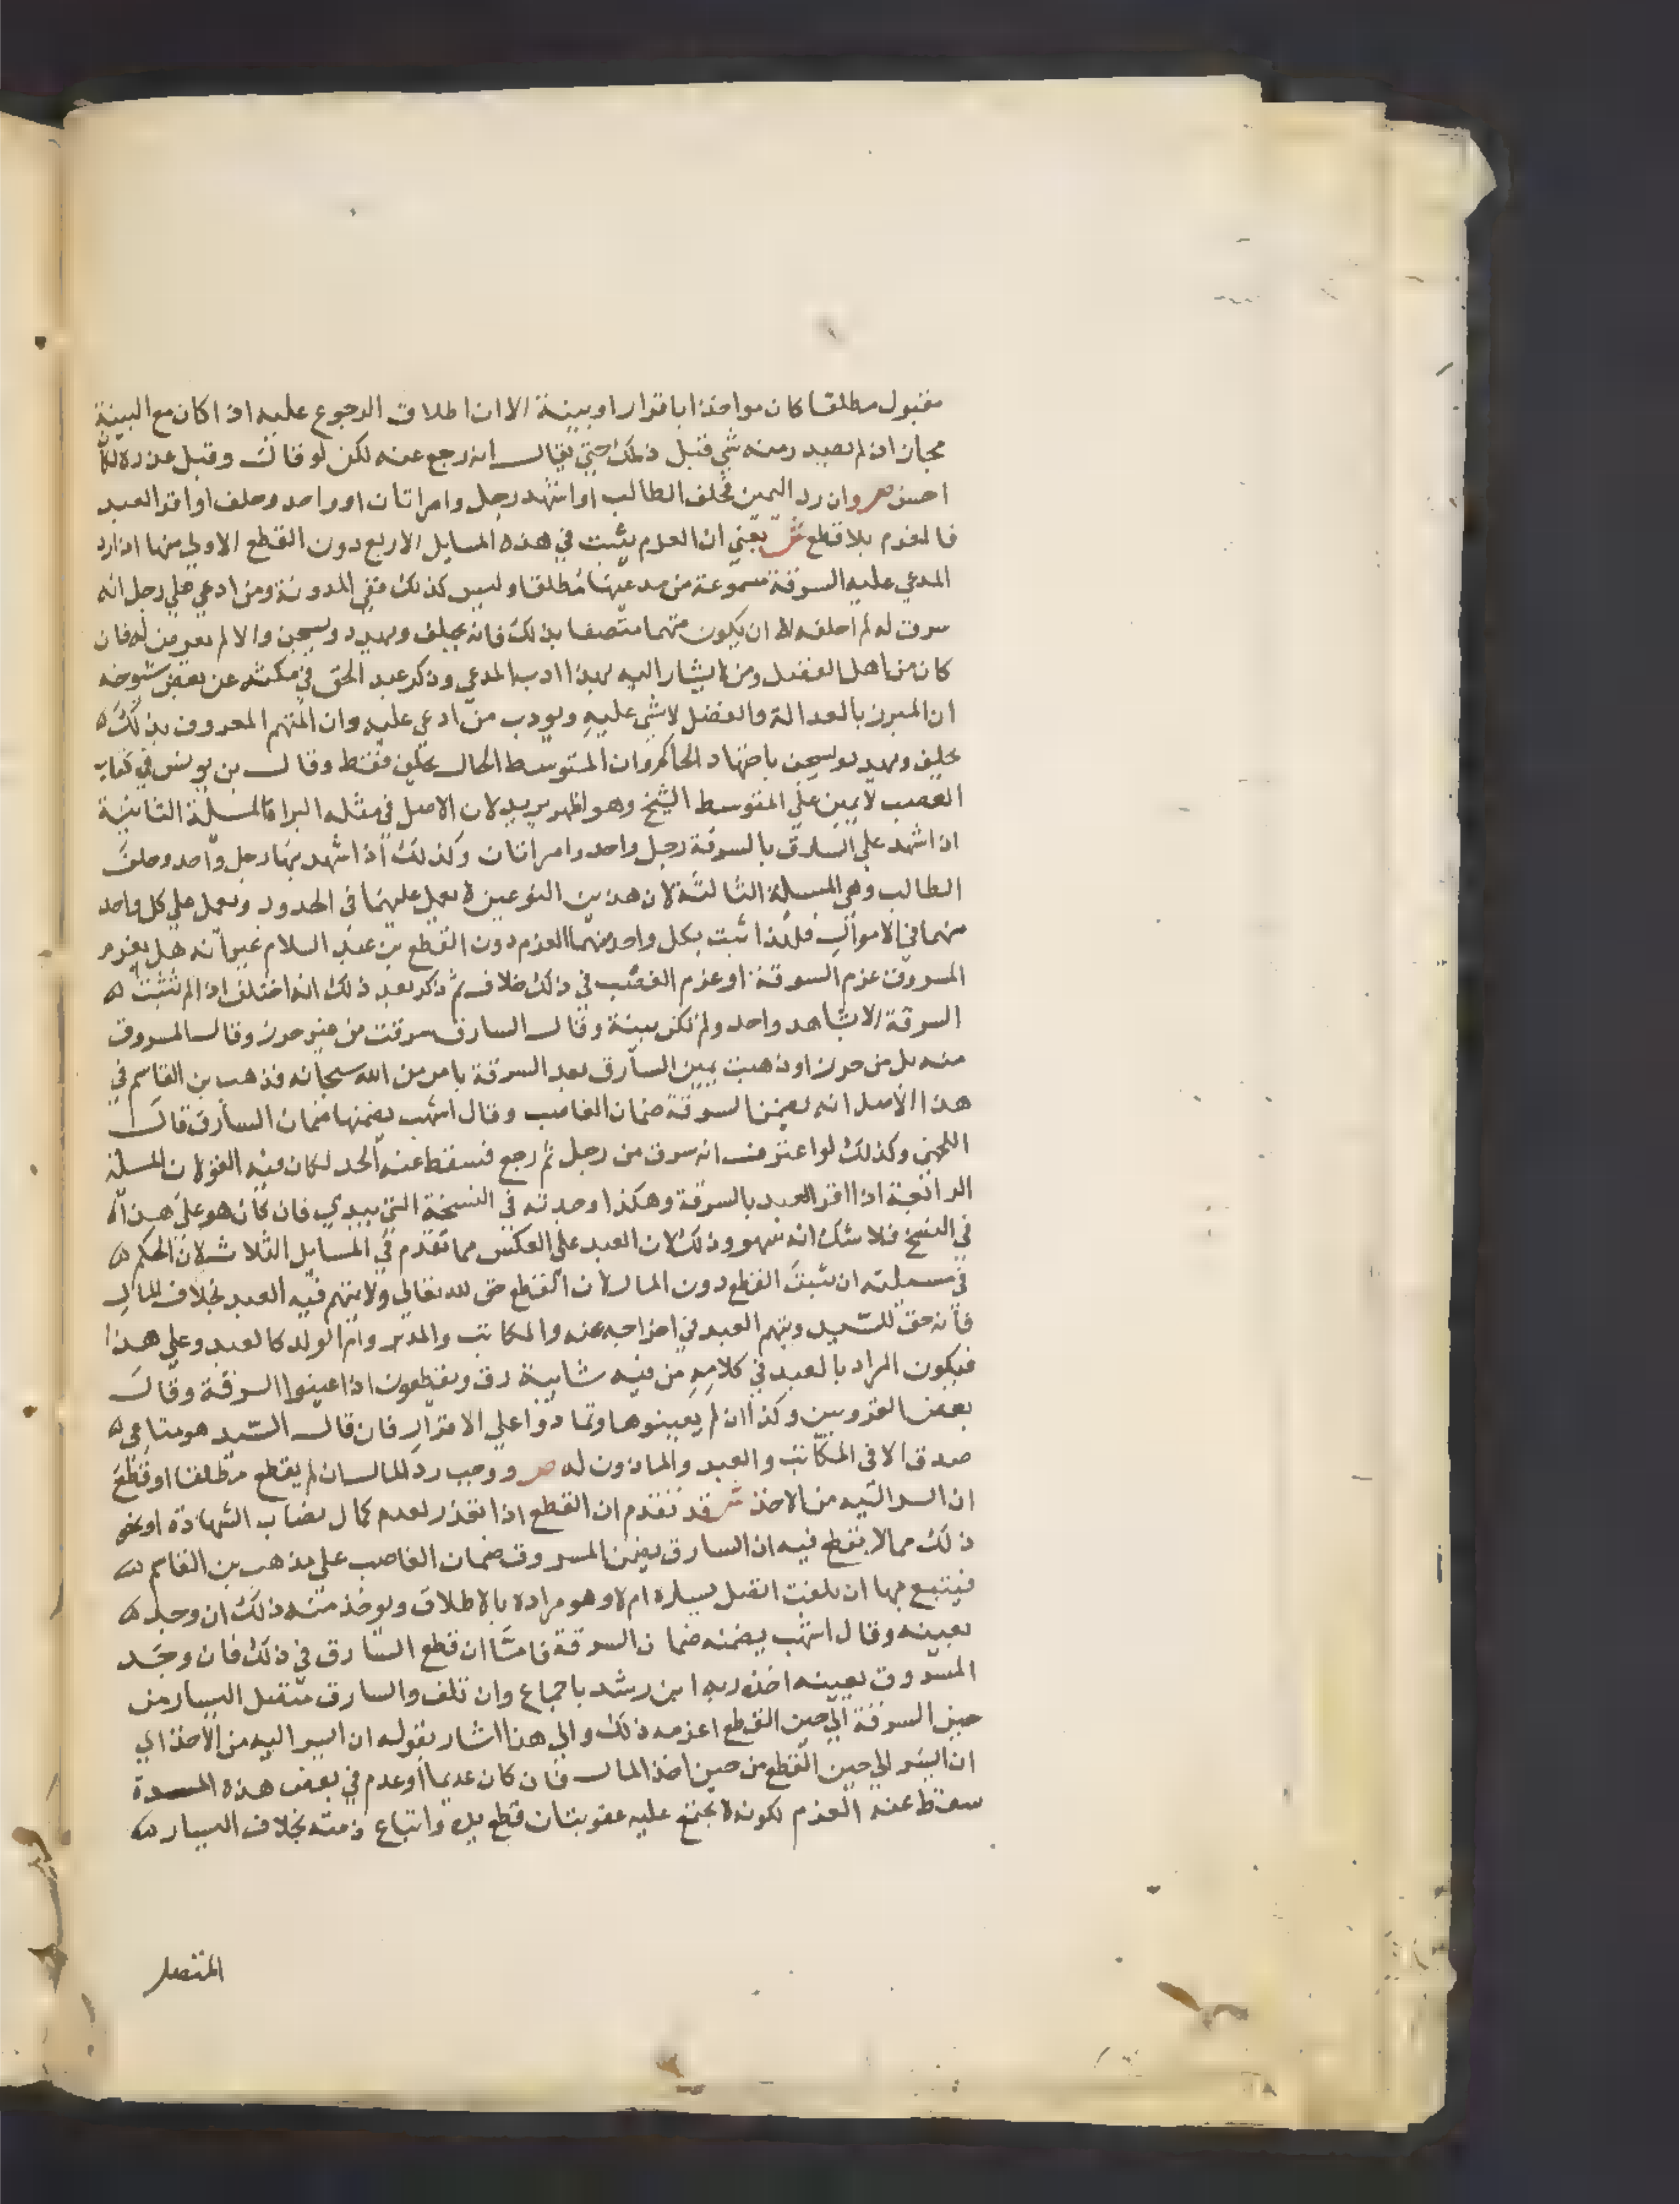 مقبول مطلقا كان مواخذا باقرار او بينة الا ان اطلاق الرجوع عليه اذا كان مع البينة
مجاز اذ لم يصدر منه شي قبل ذلك حتي يقال انه رجع عنه لكن لو قال وقبل عذره لكان
احسن ص وان رد اليمين فحلف الطالب او شهد رجل وامراتان او واحد وحلف او اقر العبد
فالغرم بلا قطع ش يعني ان الغرم يثبت في هذه المسايل الاربع دون القطع الاولي منها اذا رد
المدعي عليه السرقة مسموعة من مدعيها مطلقا وليس كذلك ففي المدونة ومن ادعي علي رجل انه
سرق له لم احلفه الا ان يكون متهما متصفا بذلك فانه يحلف ويهدد ويسجن والا لم يعرض له فان
كان من اهل الفضل ومن لا يشار اليه بهذا ادب المدعي وذكر عبد الحق في نكته عن بعض شيوخه
ان المبرز بالعدالة والفضل لا شي عليه ويودب من ادعي عليه وان المتهم المعروف بذلك
يحلف ويهدد ويسجن باجتهاد الحاكم وان المتوسط الحال يحلف فقط وقال بن يونس في كتاب
الغصب لا يمين علي المتوسط الشيخ وهو اظهر يريد لان الاصل في مثله البراة المسلة الثانية
اذا شهد علي السارق بالسرقة رجل واحد وامراتان وكذلك اذا شهد بها رجل واحد وحلف
الطالب وهي المسلة الثالثة لان هذين النوعين لا يعمل عليهما في الحدود ويعمل علي كل واحد
منهما في الاموال فلذا ثبت بكل واحد منهما الغرم دون القطع بن عبد السلام غير انه هل يغرم
المسروق غرم السرقة او غرم الغصب في ذلك خلاف ثم ذكر بعد ذلك انه اختلف اذا لم تثبت
السرقة الا بشاهد واحد ولم تكن بينة وقال السارق سرقت من غير حرز وقال المسروق
منه بل من حرز او ذهبت يمين السارق بعد السرقة بامر من الله سبحانه فذهب بن القاسم في
هذا الاصل انه يضمن السرقة ضمان الغاصب وقال اشهب يضمنها ضمان السارق قال
اللخمي وكذلك لو اعترف انه سرق من رجل ثم رجع فسقط عنه الحد لكان فيه القولان المسلة
الرابعة اذا اقر العبد بالسرقة وهكذا وجدته في النسخة التي بيدي فان كان هو علي هذا
في النسخ فلا شك انه سهو وذلك لان العبد علي العكس مما تقدم في المسايل الثلاث لان الحكم
في مسلته ان يثبت القطع دون المال لان القطع حق لله تعالي ولا يتهم فيه العبد بخلاف المال
فانه حق للسيد ويتهم العبد في اخراجه عنه والمكاتب والمدبر وام الولد كالعبد وعلي هذا
فيكون المراد بالعبد في كلامه من فيه شايبة رق ويقطعون اذا عينوا السرقة وقال
بعض القرويين وكذا ان لم يعينوها وتمادوا علي الاقرار فان قال السيد هو متاعي
صدق الا في المكاتب والعبد والماذون له ص ووجب رد المال ان لم يقطع مطلقا او قطع
ان ايسر اليه من الاخذ ش قد تقدم ان القطع اذا تعذر لعدم كمال نصاب الشهادة او نحو
ذلك مما لا يقطع فيه ان السارق يضمن المسروق ضمان الغاصب علي مذهب بن القاسم
فيتبع بها ان تلفت اتصل يساره ام لا وهو مراده بالاطلاق ويوخذ منه ذلك ان وجد
بعينه وقال اشهب يضمنه ضمان السرقة فاما ان قطع السارق في ذلك فان وجد
المسروق بعينه اخذه ربه ابن رشد باجماع وان تلف والسارق متصل اليسار من
حين السرقة الي حين القطع اغرمه ذلك والي هذا اشار بقوله ان ايسر اليه من الاخذ اي
ان ايسر الي حين القطع من حين اخذ المال فان كان عديما او عدم في بعض هذه المدة
سقط عنه الغرم لكونه لا تجتمع عليه عقوبتان قطع يده واتباع ذمته بخلاف اليسار
المتصل